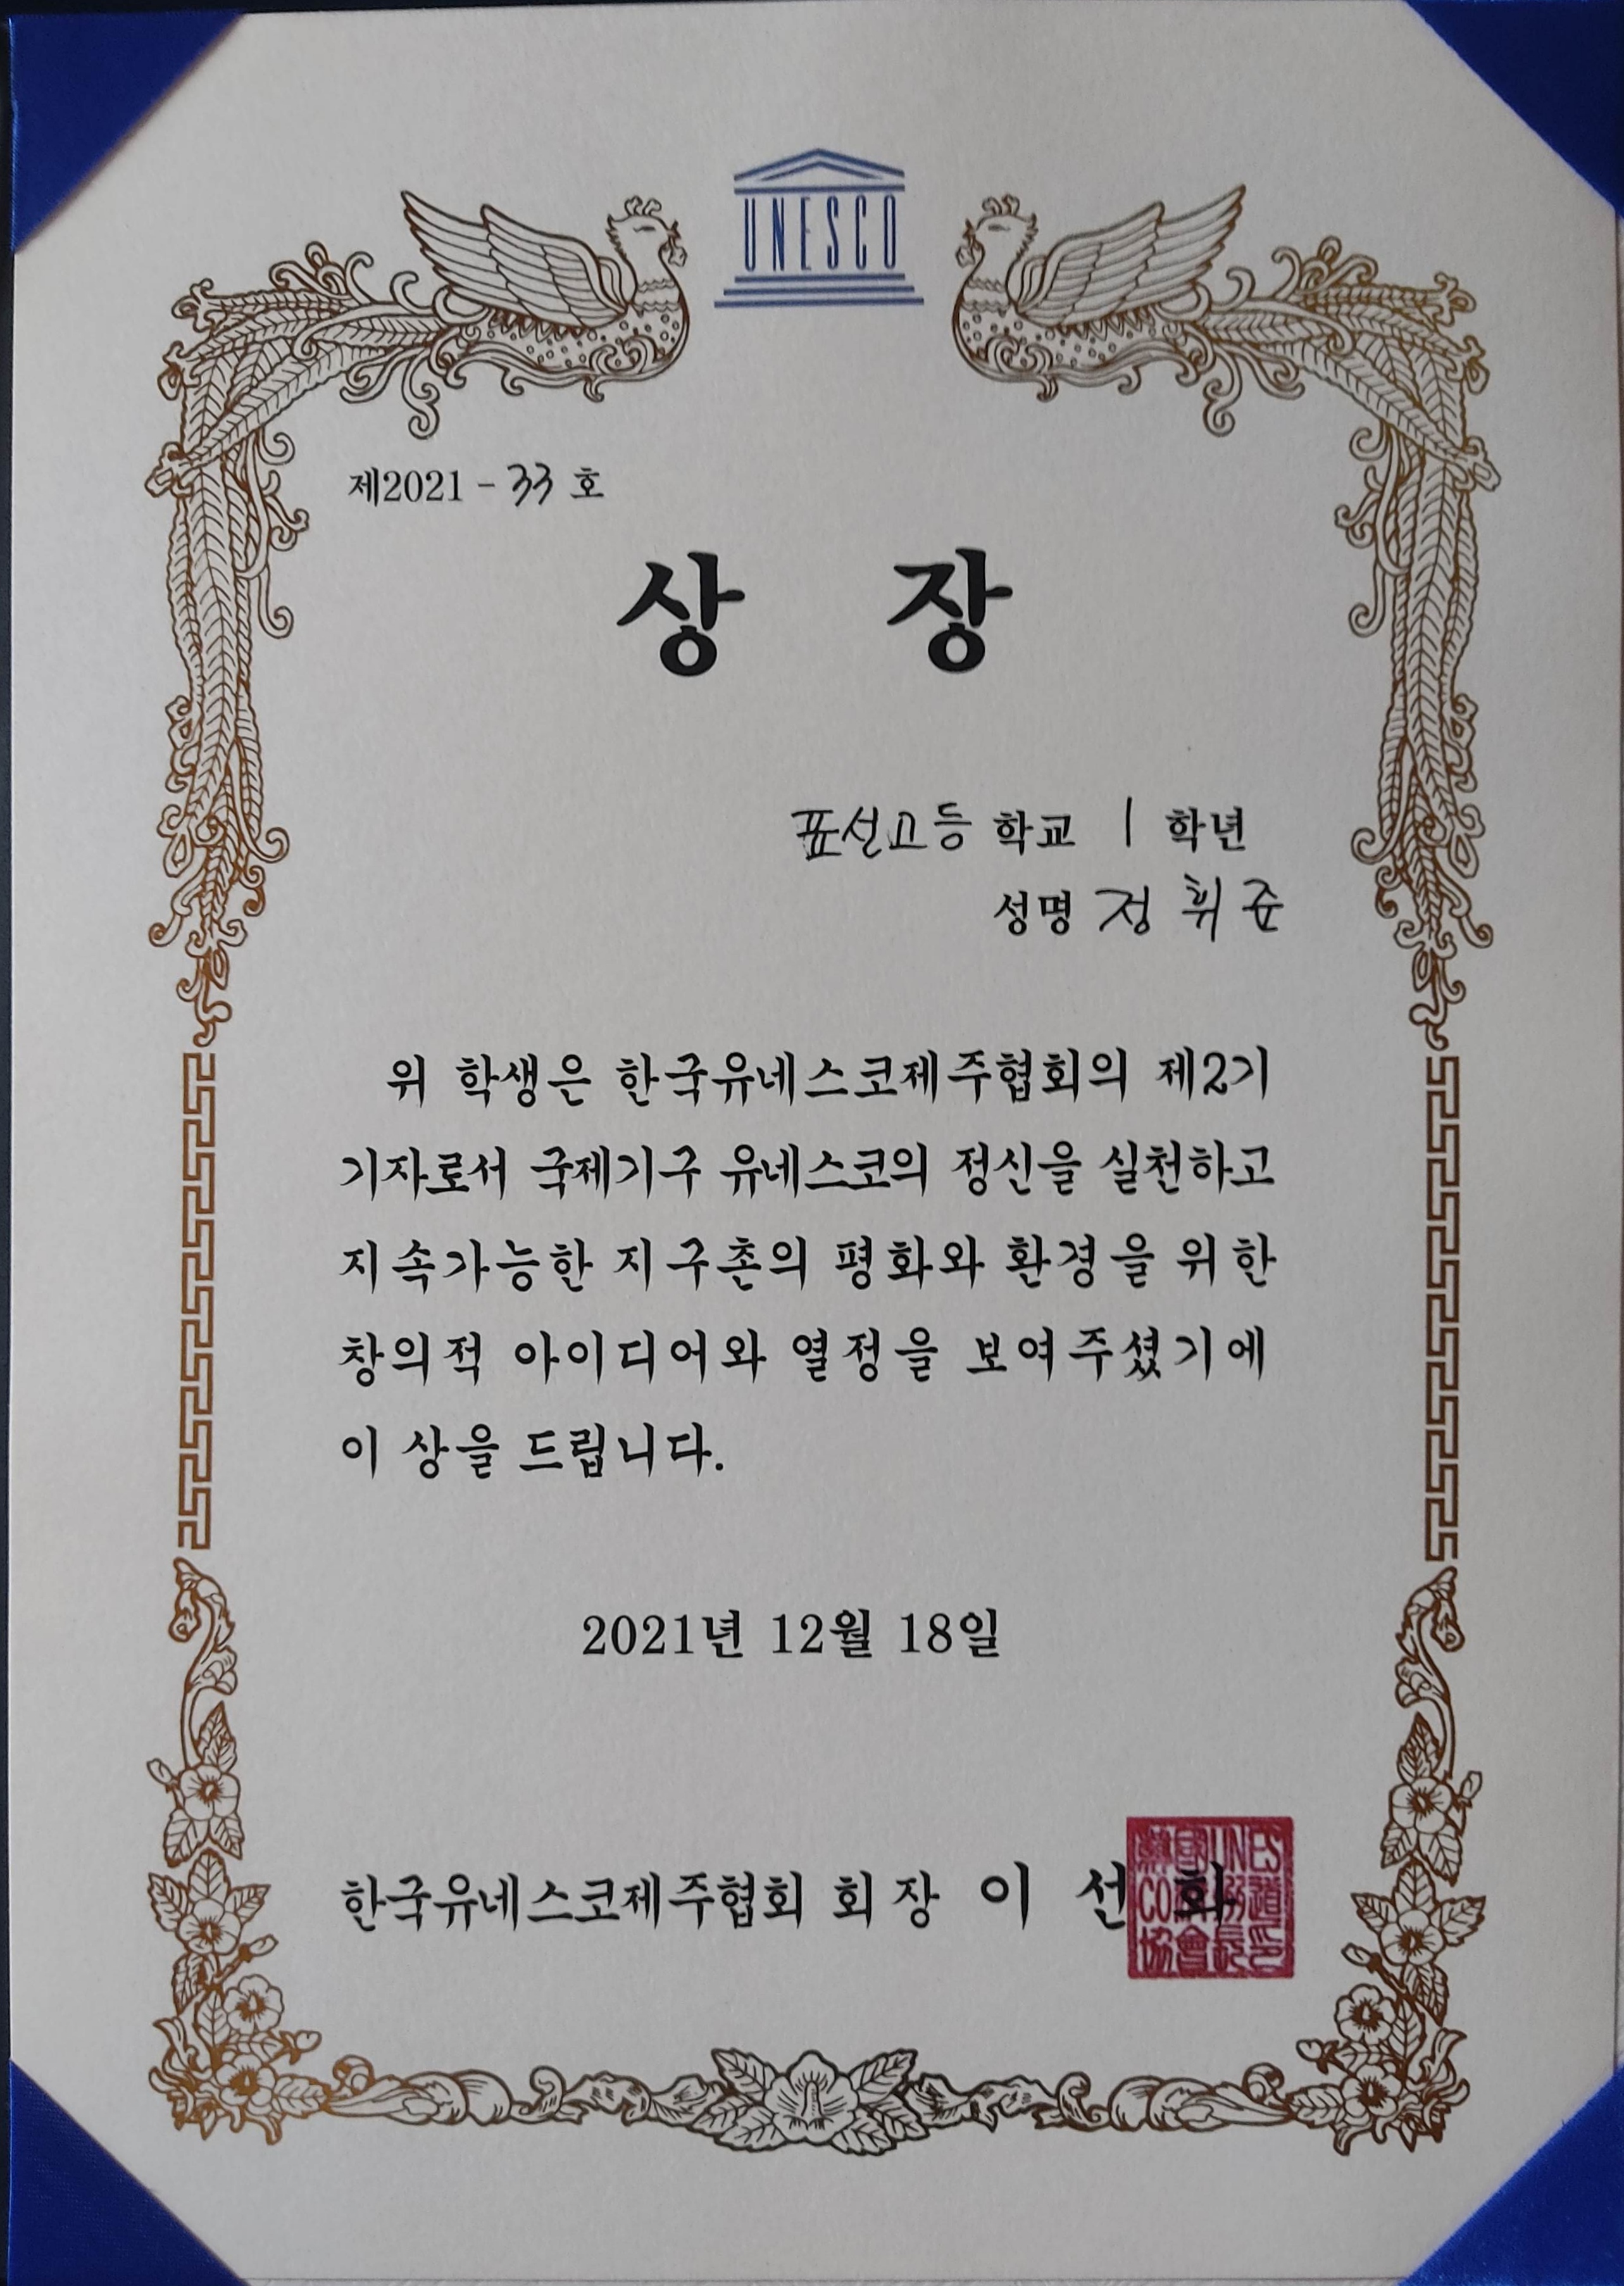 UNESCO
제2021 - 33 호
상 장
표선고등 학교 1 학년
성명 정 휘 준
위 학생은 한국유네스코제주협회의 제2기
기자로서 국제기구 유네스코의 정신을 실천하고
지속가능한 지구촌의 평화와 환경을 위한
창의적 아이디어와 열정을 보여주셨기에
이 상을 드립니다.
2021년 12월 18일
한국유네스코제주협회 회장 이 선 화
國UNES
CO
協會長印